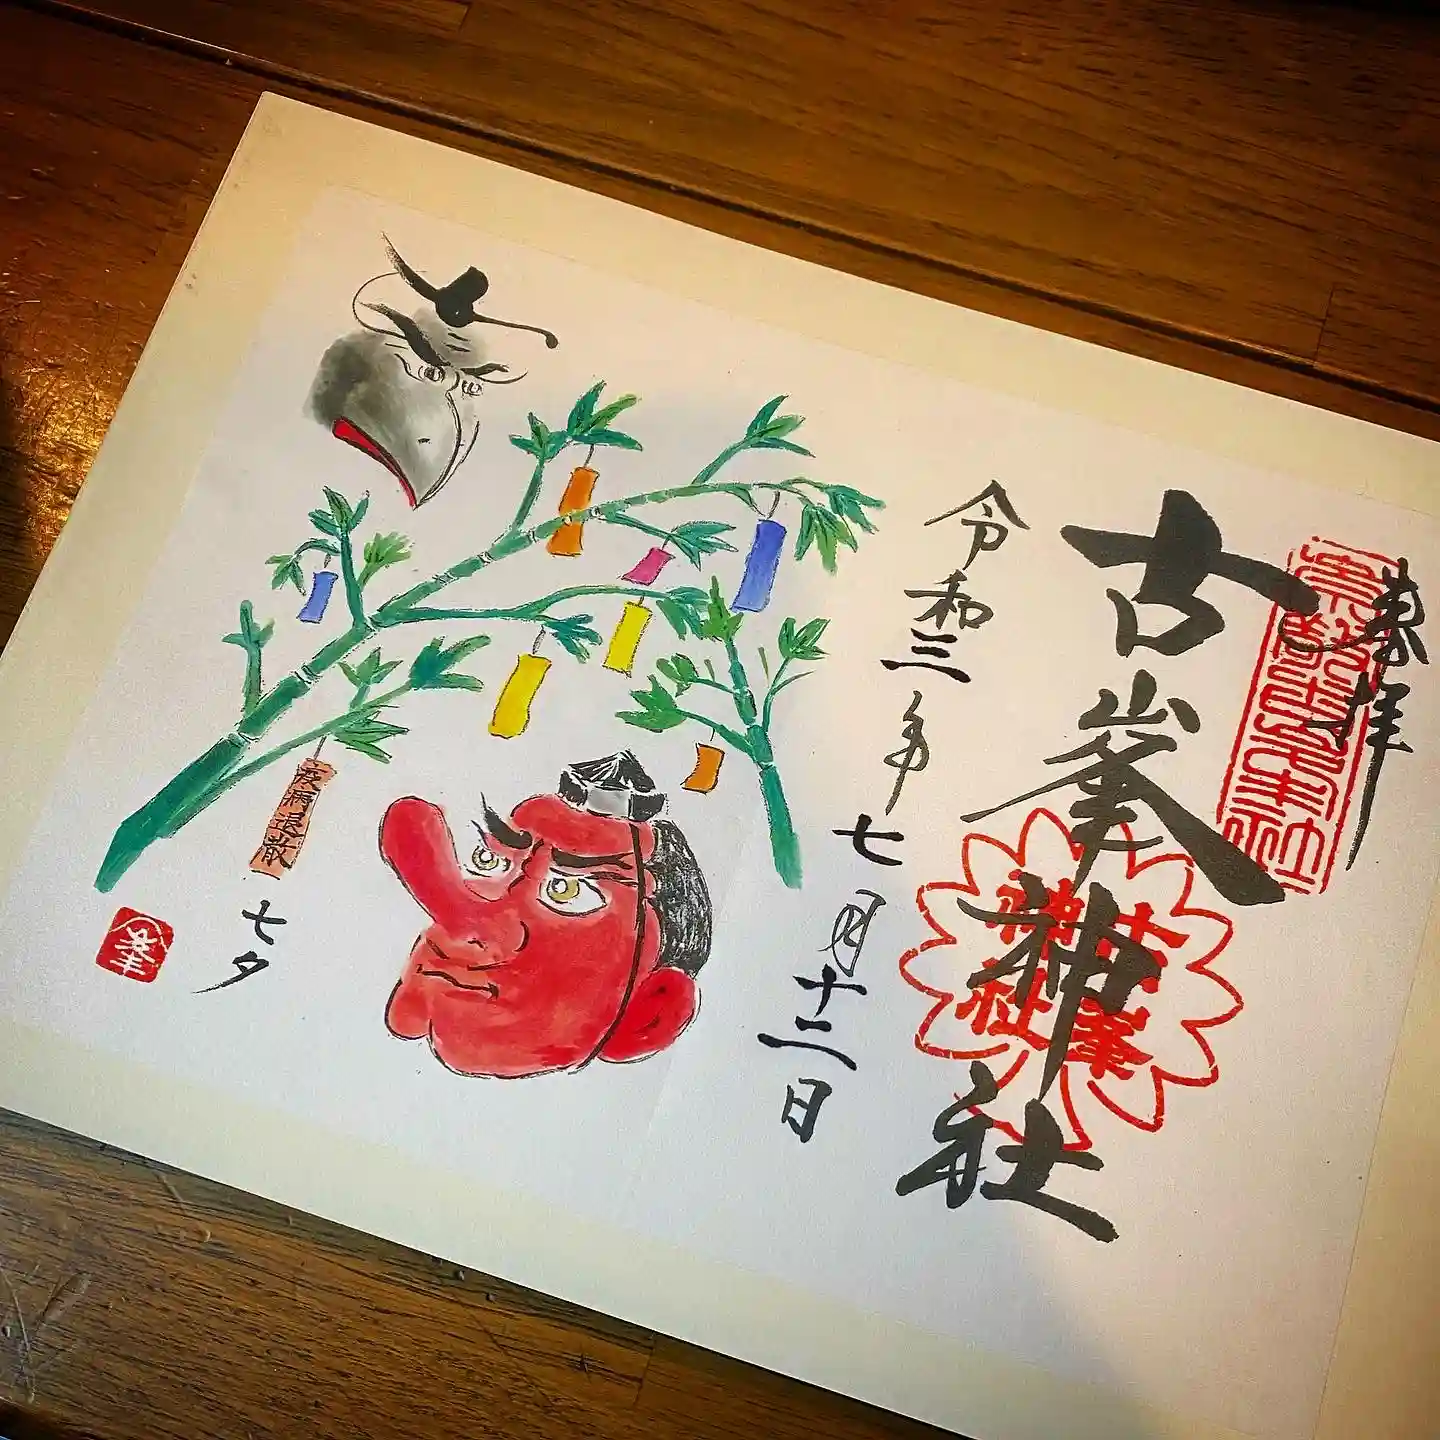 奉拝
古峯神社
令和三年七月十二日
疫病退散
七夕
峯